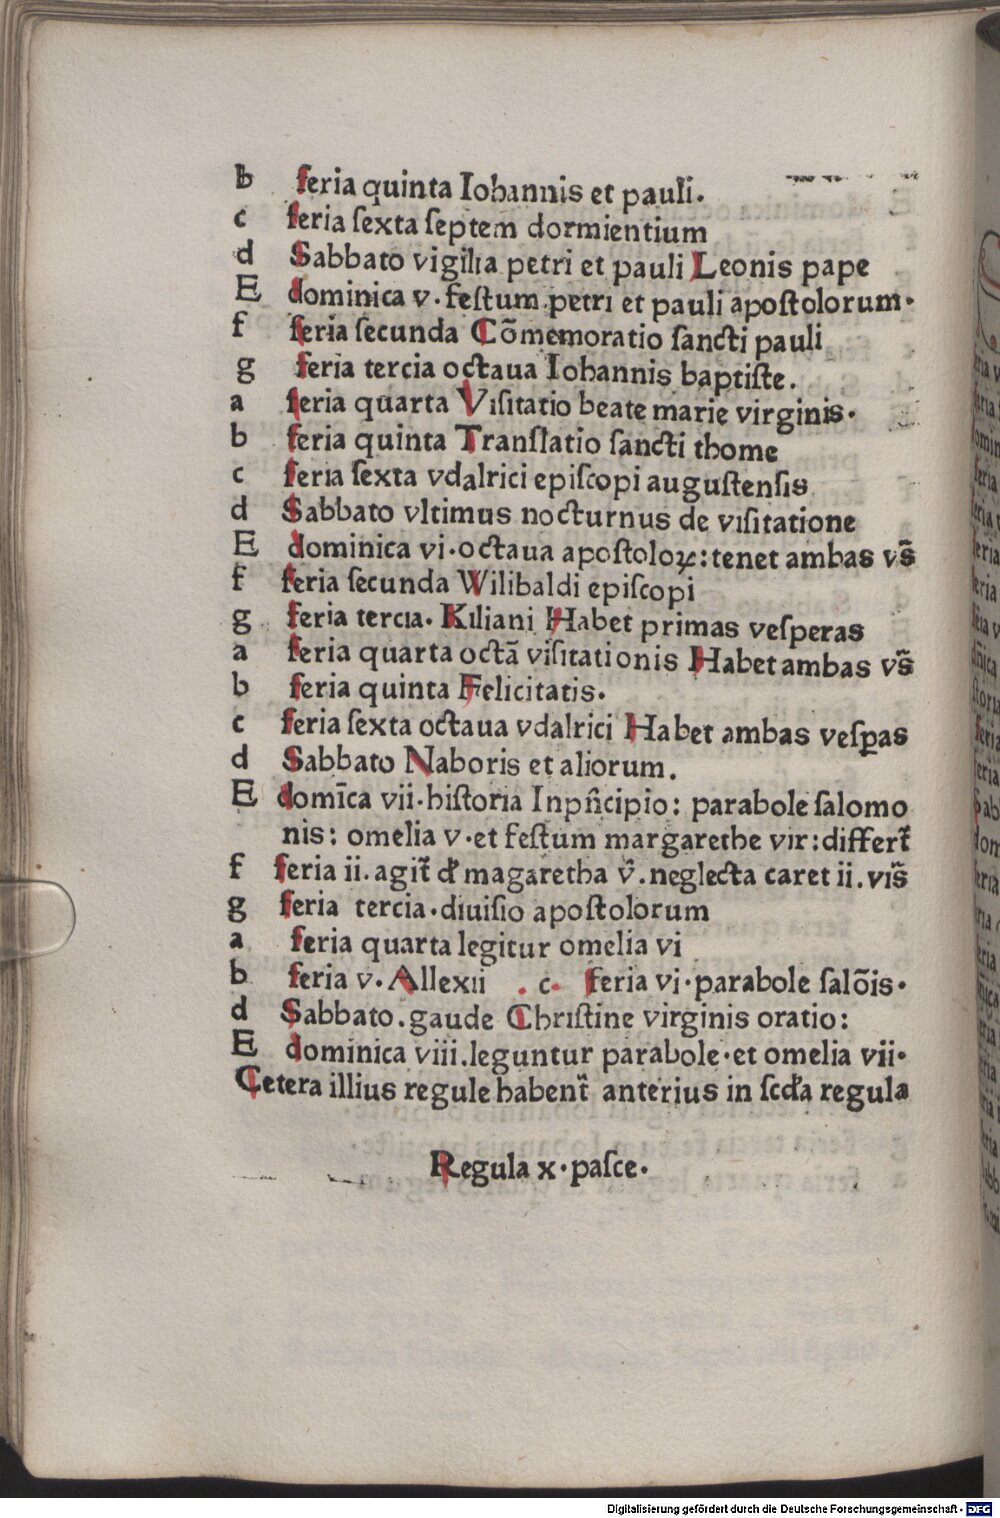 b feria quinta Iohannis et pauli.
c feria ſexta ſeptem dormientium
d Sabbato vigilia petri et pauli Leonis pape
E dominica v. feſtum petri et pauli apoſtolorum.
f feria ſecunda Cōmemoratio ſancti pauli
g feria tercia octaua Iohannis baptiſte.
a feria quarta Viſitatio beate marie virginis.
b feria quinta Tranſlatio ſancti thome
c feria ſexta vdalrici epiſcopi auguſtenſis
d Sabbato vltimus nocturnus de viſitatione
E dominica vi.octaua apoſtoloꝝ:tenet ambas vs̄
f feria ſecunda Wilibaldi epiſcopi
g feria tercia. Kiliani Habet primas veſperas
a feria quarta octā viſitationis Habet ambas vs̄
b feria quinta Felicitatis.
c feria ſexta octaua vdalrici Habet ambas veſꝑas
d Sabbato Naboris et aliorum.
E domīca vii.hiſtoria Inpn̄cipio: parabole ſalomo
nis: omelia v.et feſtum margarethe vir:differt̄
f feria ii.agit̄ đ magaretha v̄.neglecta caret ii.vis̄
g feria tercia.diuiſio apoſtolorum
a feria quarta legitur omelia vi
b feria v. Allexii . c. feria vi.parabole ſalōis.
d Sabbato.gaude Chriſtine virginis oratio:
E dominica viii.leguntur parabole.et omelia vii.
Cetera illius regule habent̄ anterius in ſcđa regula
Regula x.paſce.
Digitalisierung gefördert durch die Deutsche Forschungsgemeinschaft - DFG